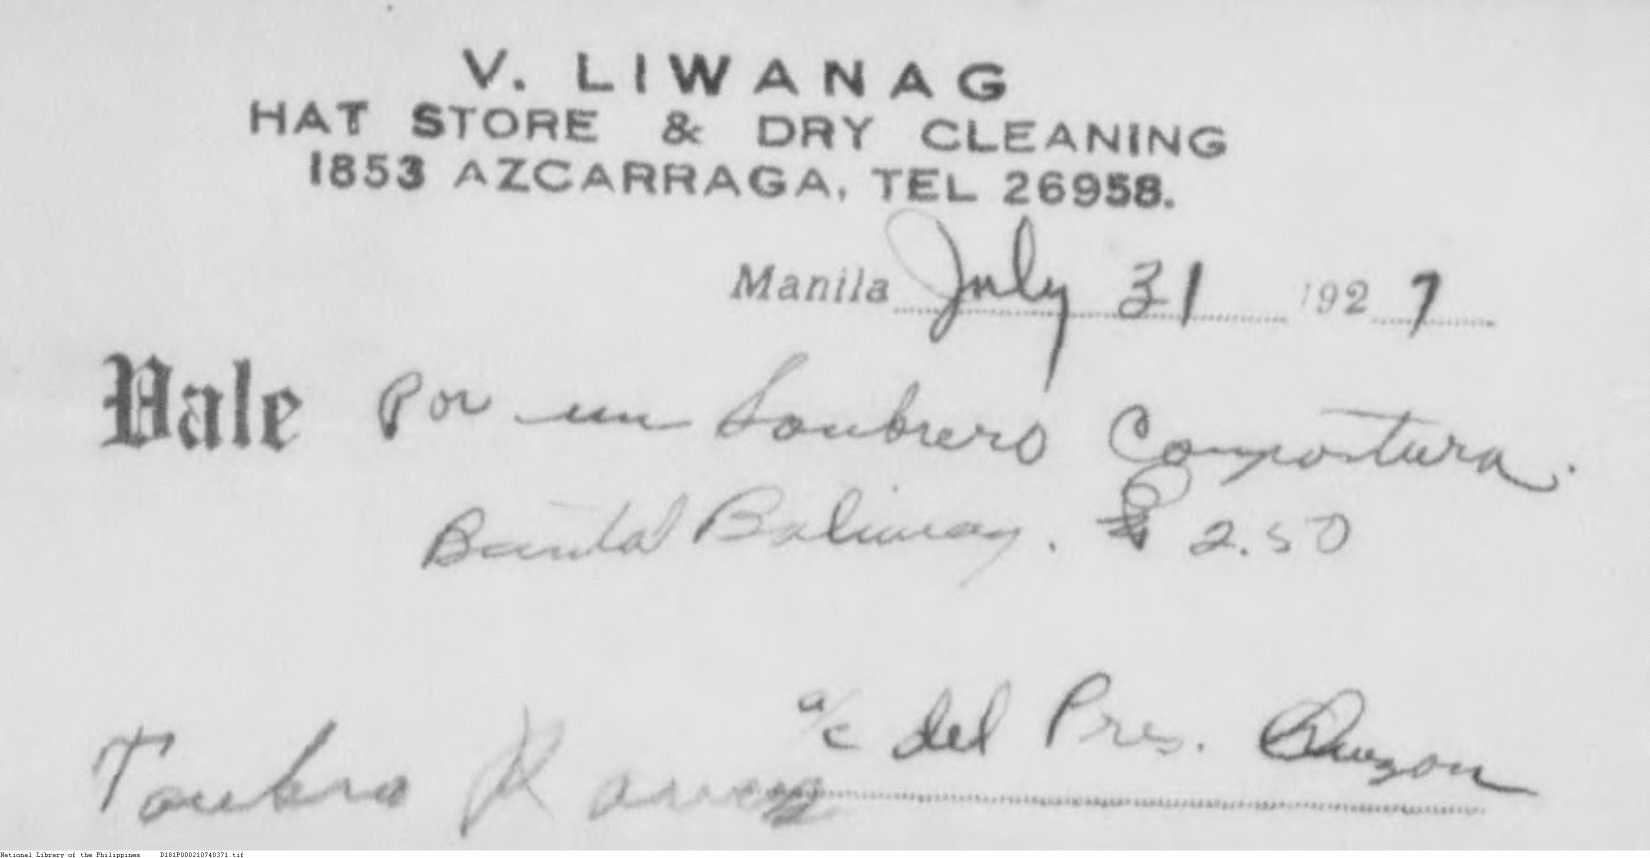 V. LIWANAG
HAT STORE & DRY CLEANING
1853 AZCARRAGA, TEL 26958.
Manila July 31 1927
Vale por un Sombrero Compostura.
Baliuag. ₱ 2.50
a/c del Pres. Quezon
National Library of the Philippines D181P000210740371.tif